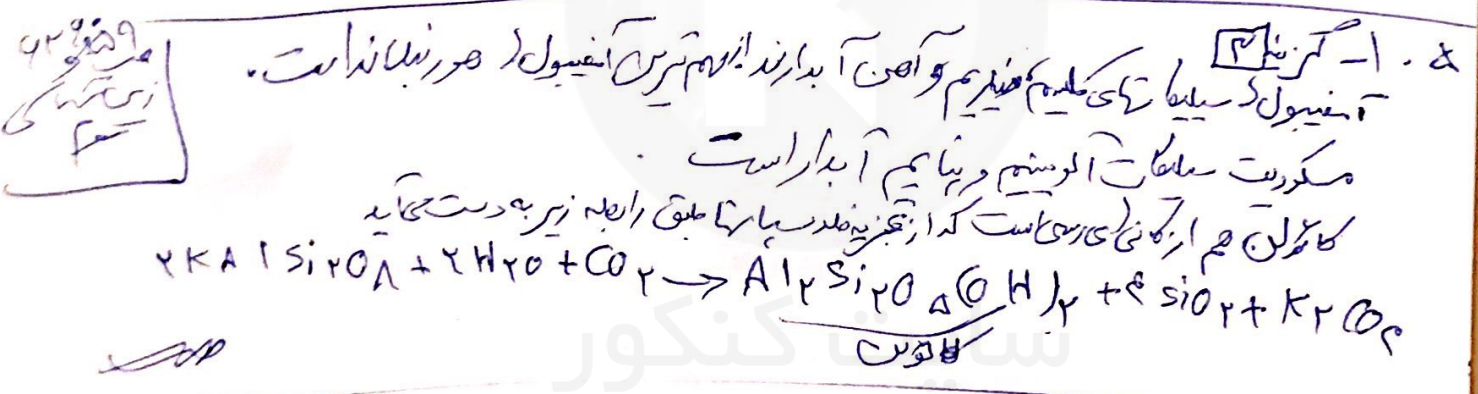 ۱۰۵ - گزینه
آمفیبول‌ها سیلیکات‌های کلسیم، منیزیم و آهن آبدارند از مهم‌ترین آمفیبول‌ها هورنبلاند است.
مسکوویت سیلیکات آلومینیم و پتاسیم آبدار است
کائولن هم از کانی‌های رسی است که از تجزیه فلدسپارها طبق رابطه زیر به دست می‌آید
۲KAlSi۳O۸ + ۲H۲O + CO۲ → Al۲Si۲O۵(OH)۲ + ۴SiO۲ + K۲CO۳
کائولن
صفحه ۶۲
زمین‌شناسی
سوم
سایت کنکور